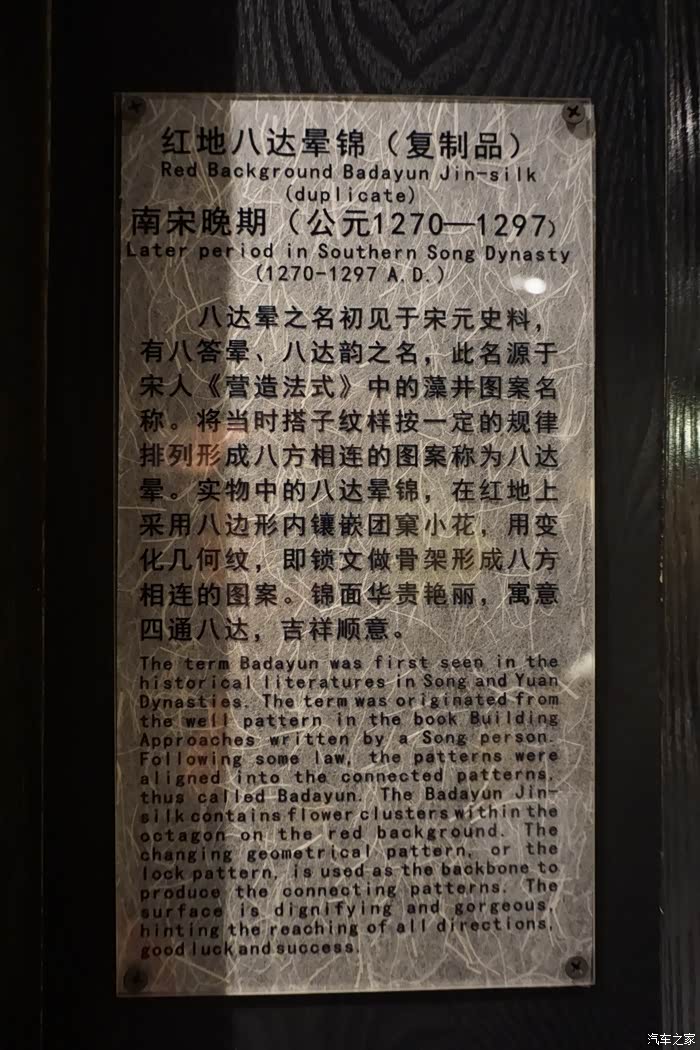 红地八达晕锦（复制品）
Red Background Badayun Jin-silk
(duplicate)
南宋晚期（公元1270—1297）
Later period in Southern Song Dynasty
(1270-1297 A.D.)
八达晕之名初见于宋元史料，
有八答晕、八达韵之名，此名源于
宋人《营造法式》中的藻井图案名
称。将当时搭子纹样按一定的规律
排列形成八方相连的图案称为八达
晕。实物中的八达晕锦，在红地上
采用八边形内镶嵌团窠小花，用变
化几何纹，即锁文做骨架形成八方
相连的图案。锦面华贵艳丽，寓意
四通八达，吉祥顺意。
The term Badayun was first seen in the
historical literatures in Song and Yuan
Dynasties. The term was originated from
the well pattern in the book Building
Approaches written by a Song person.
Following some law, the patterns were
aligned into the connected patterns,
thus called Badayun. The Badayun Jin-
silk contains flower clusters within the
octagon on the red background. The
changing geometrical pattern, or the
lock pattern, is used as the backbone to
produce the connecting patterns. The
surface is dignifying and gorgeous,
hinting the reaching of all directions,
good luck and success.
汽车之家